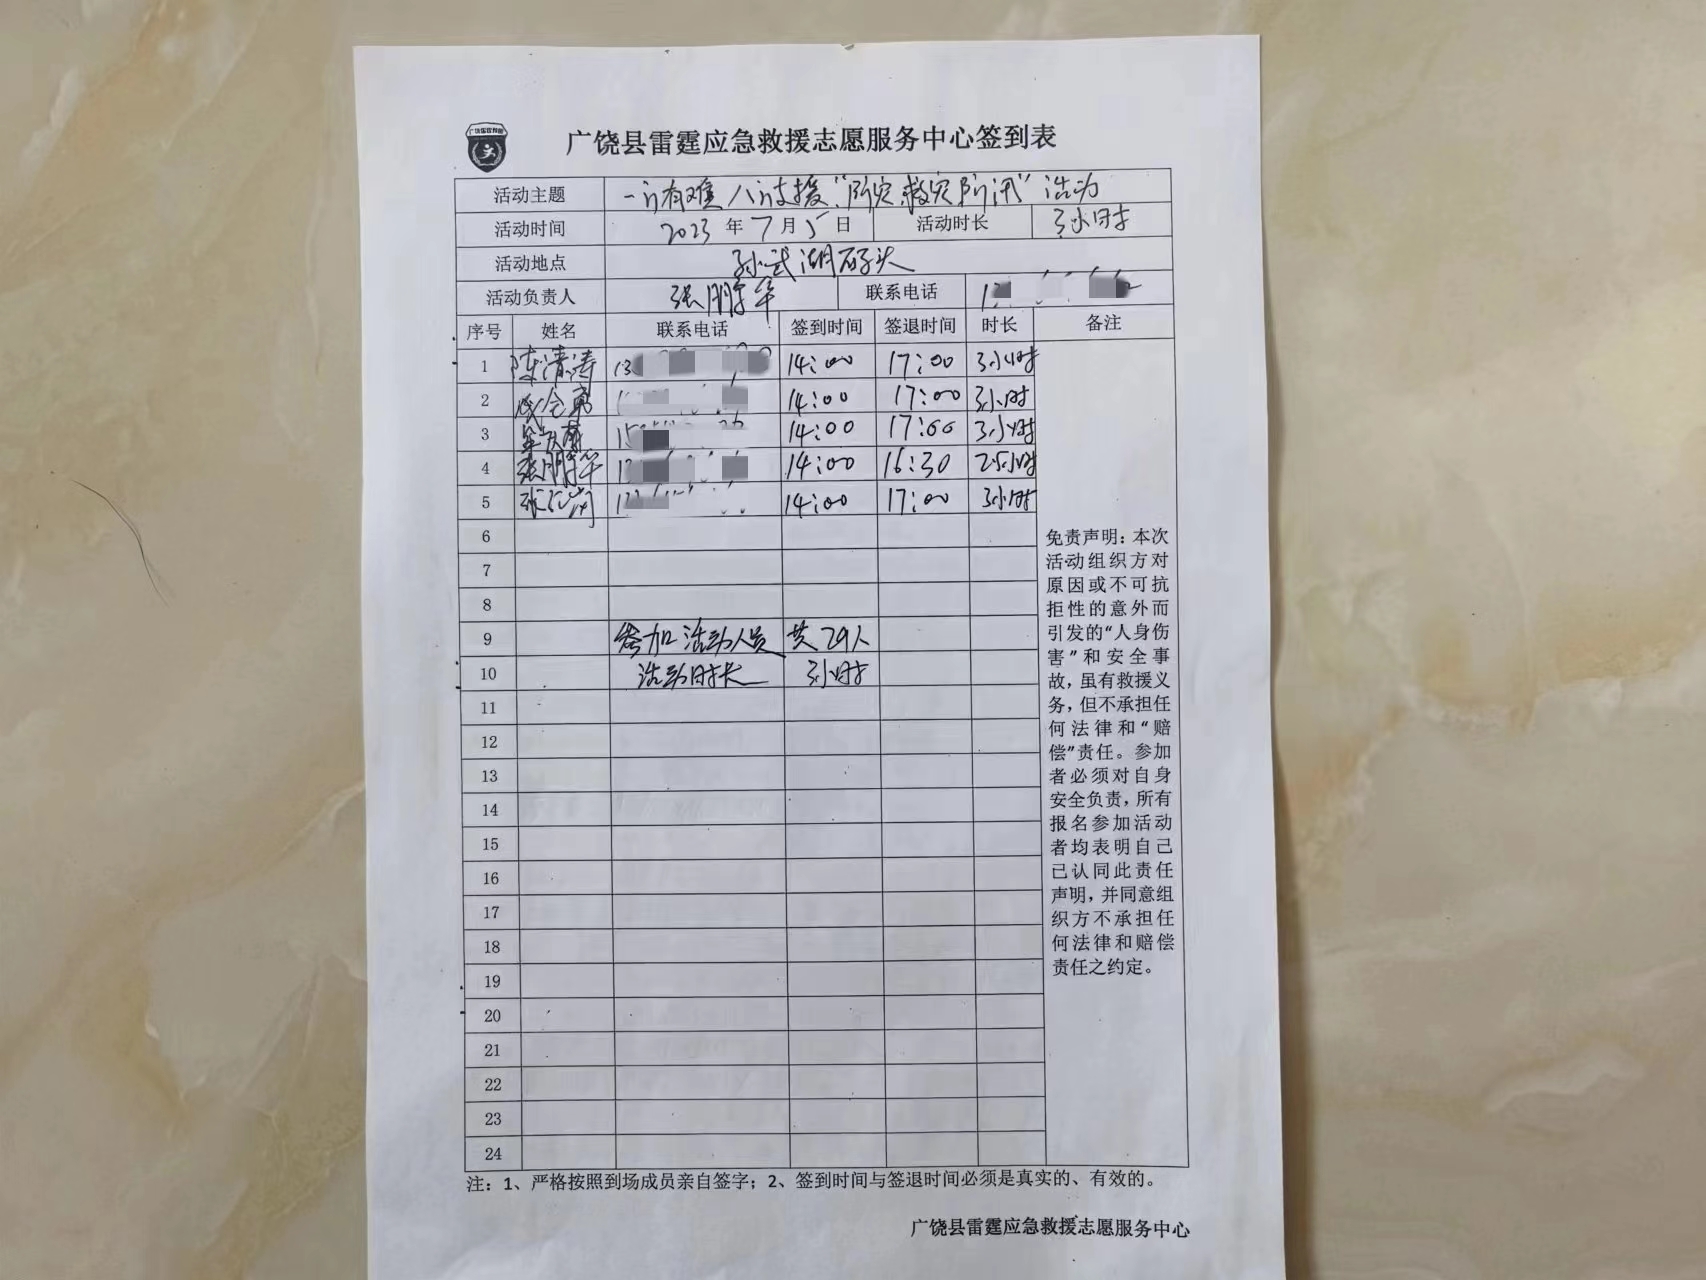 广饶县雷霆应急救援志愿服务中心签到表
活动主题 一方有难八方支援"防灾救灾防汛"活动
活动时间 2023年7月5日 活动时长 3小时
活动地点 孙武湖码头
活动负责人 张鹏华 联系电话
序号 姓名 联系电话 签到时间 签退时间 时长 备注
1 陈清涛 13 14:00 17:00 3小时
2 14:00 17:00 3小时
3 14:00 17:00 3小时
4 张鹏华 14:00 16:30 2.5小时
5 14:00 17:00 3小时
6
7
8
9 参加活动人员 共29人
10 活动时长 3小时
11
12
13
14
15
16
17
18
19
20
21
22
23
24
免责声明：本次
活动组织方对
原因或不可抗
拒性的意外而
引发的"人身伤
害"和安全事
故，虽有救援义
务，但不承担任
何法律和"赔
偿"责任。参加
者必须对自身
安全负责，所有
报名参加活动
者均表明自己
已认同此责任
声明，并同意组
织方不承担任
何法律和赔偿
责任之约定。
注：1、严格按照到场成员亲自签字；2、签到时间与签退时间必须是真实的、有效的。
广饶县雷霆应急救援志愿服务中心